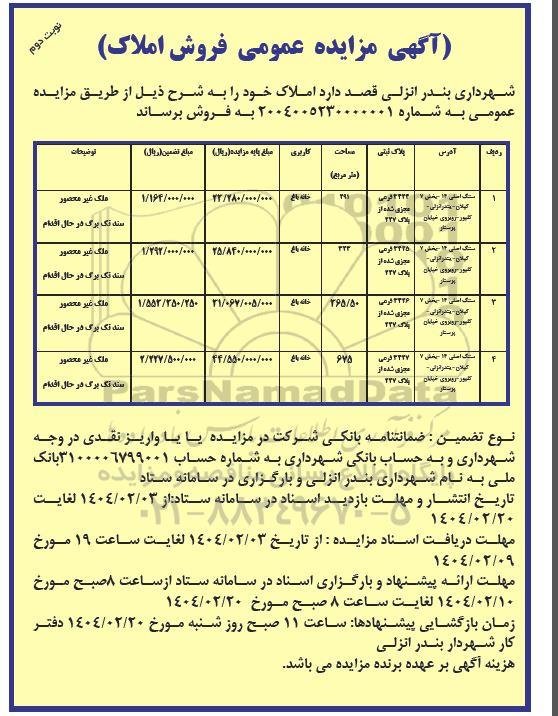 نوبت دوم
(آگهی مزایده عمومی فروش املاک)
شهرداری بندر انزلی قصد دارد املاک خود را به شرح ذیل از طریق مزایده
عمومی به شماره ۲۰۰۴۰۰۵۲۳۰۰۰۰۰۰۱ به فروش برساند
ردیف آدرس پلاک ثبتی مساحت (متر مربع) کاربری مبلغ پایه مزایده(ریال) مبلغ تضمین(ریال) توضیحات
۱ سنگ اصلی ۱۴ -بخش ۷ گیلان-بندرانزلی-کلیور-روبروی خیابان پرستار ۳۴۳۴ فرعی مجزی شده از پلاک ۴۳۷ ۲۹۱ خانه باغ ۲۳/۲۸۰/۰۰۰/۰۰۰ ۱/۱۶۴/۰۰۰/۰۰۰ ملک غیر محصور سند تک برگ در حال اقدام
۲ سنگ اصلی ۱۴ -بخش ۷ گیلان-بندرانزلی-کلیور-روبروی خیابان پرستار ۳۴۳۵ فرعی مجزی شده از پلاک ۴۳۷ ۳۲۳ خانه باغ ۲۵/۸۴۰/۰۰۰/۰۰۰ ۱/۲۹۲/۰۰۰/۰۰۰ ملک غیر محصور سند تک برگ در حال اقدام
۳ سنگ اصلی ۱۴ -بخش ۷ گیلان-بندرانزلی-کلیور-روبروی خیابان پرستار ۳۴۳۶ فرعی مجزی شده از پلاک ۴۳۷ ۳۶۵/۵۰ خانه باغ ۳۱/۰۶۷/۰۰۵/۰۰۰ ۱/۵۵۳/۳۵۰/۲۵۰ ملک غیر محصور سند تک برگ در حال اقدام
۴ سنگ اصلی ۱۴ -بخش ۷ گیلان-بندرانزلی-کلیور-روبروی خیابان پرستار ۳۴۳۷ فرعی مجزی شده از پلاک ۴۳۷ ۶۷۵ خانه باغ ۴۴/۵۵۰/۰۰۰/۰۰۰ ۲/۲۲۷/۵۰۰/۰۰۰ ملک غیر محصور سند تک برگ در حال اقدام
نوع تضمین : ضمانتنامه بانکی شرکت در مزایده یا یا واریز نقدی در وجه
شهرداری و به حساب بانکی شهرداری به شماره حساب ۳۱۰۰۰۰۶۷۹۹۰۰۱بانک
ملی به نام شهرداری بندر انزلی و بارگزاری در سامانه ستاد
تاریخ انتشار و مهلت بازدید اسناد در سامانه ستاد:از ۱۴۰۴/۰۲/۰۳ لغایت
۱۴۰۴/۰۲/۲۰
مهلت دریافت اسناد مزایده : از تاریخ ۱۴۰۴/۰۲/۰۳ لغایت ساعت ۱۹ مورخ
۱۴۰۴/۰۲/۰۹
مهلت ارائه پیشنهاد و بارگزاری اسناد در سامانه ستاد ازساعت ۸صبح مورخ
۱۴۰۴/۰۲/۱۰ لغایت ساعت ۸ صبح مورخ ۱۴۰۴/۰۲/۲۰
زمان بازگشایی پیشنهادها: ساعت ۱۱ صبح روز شنبه مورخ ۱۴۰۴/۰۲/۲۰ دفتر
کار شهردار بندر انزلی
هزینه آگهی بر عهده برنده مزایده می باشد.
ParsNamadData
۰۲۱-۸۸۳۴۹۶۷۰-۵